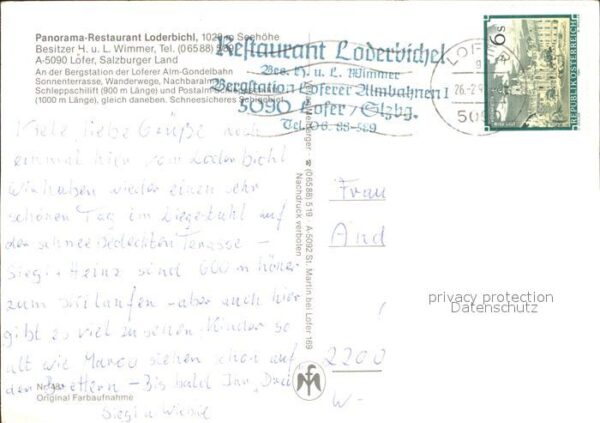 Panorama-Restaurant Loderbichl, 1020 m Seehöhe
Besitzer H. u. L. Wimmer, Tel. (06588) 589
A-5090 Lofer, Salzburger Land
An der Bergstation der Loferer Alm-Gondelbahn
Sonnenterrasse, Wanderwege, Nachbaralm
Schleppschilift (900 m Länge) und Postalm
(1000 m Länge), gleich daneben. Schneesicheres
Restaurant Loderbichel
Bes. H. u. L. Wimmer
Bergstation Loferer Almbahnen I
5090 Lofer / Slzbg.
Tel. 06. 88-589
LOFER
26.-2.9
5090
6 S
REPUBLIK ÖSTERREICH
Viele, liebe Grüße noch
einmal hier vom Loderbichl
Wir haben wieder einen sehr
schönen Tag im Liegestuhl auf
der schneebedeckten Terasse -
Siegl + Heinz sind 600 m höher
zum Skilaufen - aber auch hier
gibt es viel zu sehen. Kinder so
alt wie Marco stehen schon auf
den Brettern - Bis bald
Siegl u
Frau
And
!
2200
W-
(06588) 519 A-5092 St. Martin bei Lofer 169
Nachdruck verboten
privacy protection
Datenschutz
Nr. 48
Original Farbaufnahme